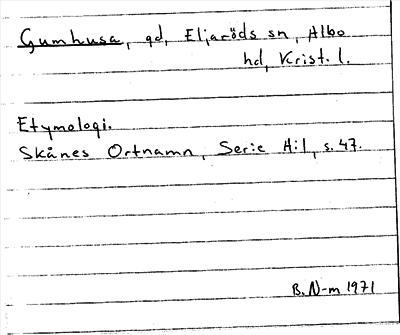 Gumhusa, gd, Eljaröds sn, Albo
hd, Krist. l.
Etymologi.
Skånes Ortnamn, Serie A:1, s. 47.
B. N-m 1971